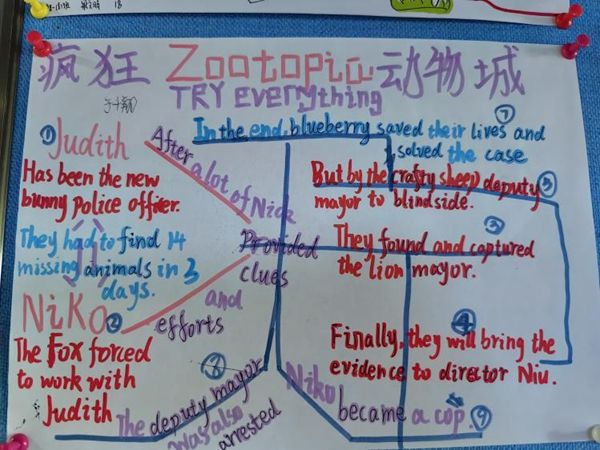 疯狂 Zootopia 动物城
TRY EVErything
① Judith
Has been the new
bunny Police officer.
They had to find 14
missing animals in 3
days.
NiKo ②
The Fox forced
to work with
Judith
After
a lot of Nick
Provided
clues
and
efforts
⑦
In the end, blueberry saved their lives and
solved the case
But by the crafty sheep deputy
mayor to blindside.
They found and captured
the lion mayor.
④
Finally, they will bring the
evidence to director Niu.
⑧
The deputy mayor
was also
arrested
Niko
became a cop. ⑨